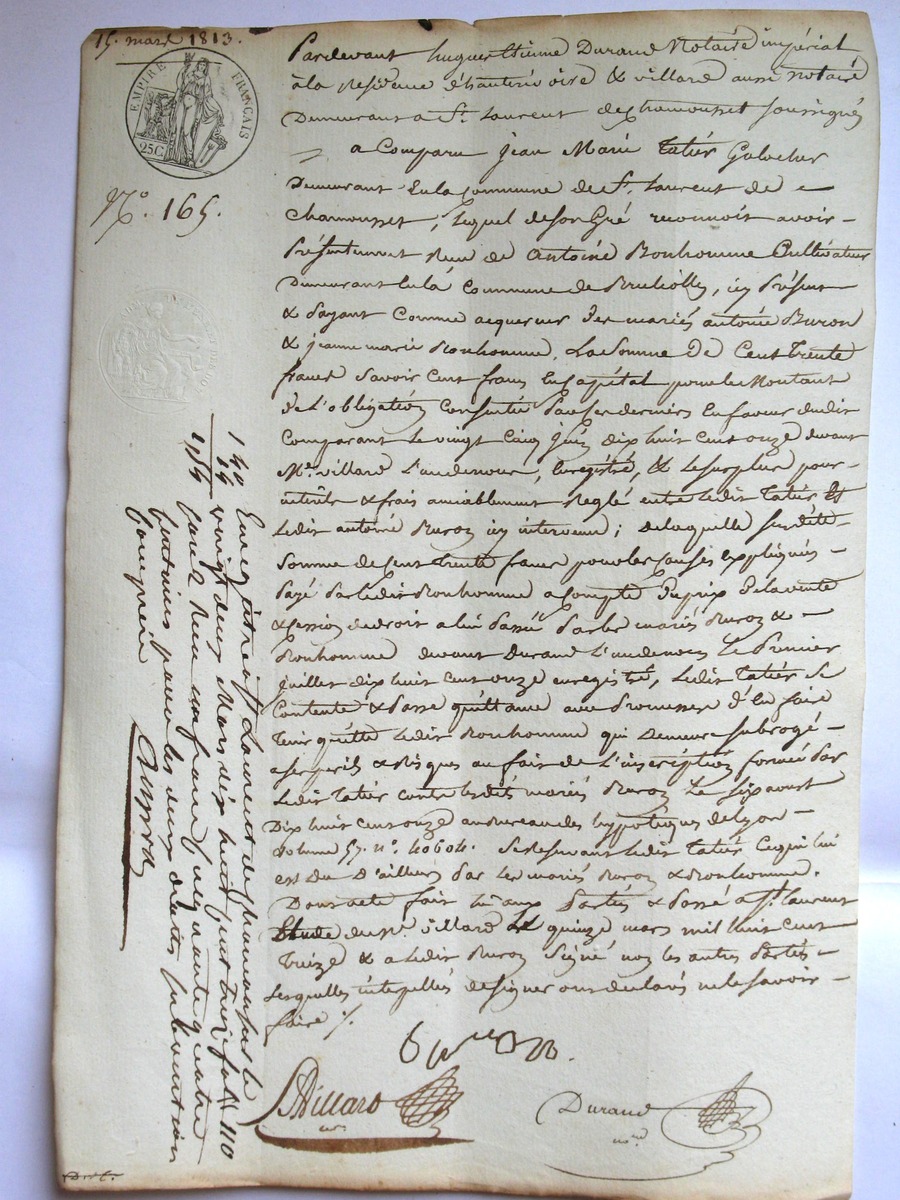 15. mars 1813.
EMPIRE FRANÇAIS
25C
N.o 165.
Pardevant hugues Etienne Durand Notaire impérial
à la Residence d'hauterivoire & villard aussi notaire
Demeurant a St. Laurent de chamousset soussignés
a Comparu jean Marie tatier Galocher
Demeurant En la Commune de St. Laurent de
Chamousset, lequel de son Gré reconnoit avoir
Présentement Reçu de Antoine Bonhomme Cultivateur
Demeurant En la Commune de , icy Présent
& Payant Comme acquereur des mariés antoine Buron
& jeanne marie Bonhomme, La somme De Cent trente
francs Savoir Cent francs En Capital pour le Montant
de L'obligation Consentie Par ses derniers En faveur dudit
Comparant Le vingt Cinq juin dix huit cent onze devant
Me. villard L'un de nous, Enregistré, & Le surplus pour
intérêts & frais amiablement Reglé entre Ledit tatier Et
Ledit antoine Buron icy intervenu; De laquelle susdite
Somme de Cent trente francs pour les Causes Expliquées
Payé Par Ledit Bonhomme a Compte Du prix De la vente
& Cession de droit a lui Passé Par les mariés Buron &
Bonhomme devant Durand L'un de nous Le Premier
juillet dix huit cent onze enregistré, Ledit tatier Se
Contente & Passe quittance avec Promesse d'En faire
tenir quitte Ledit Bonhomme qui Demeure Subrogé
a ses perils & Risques au fait de L'inscription formée Par
Ledit tatier contre lesdits mariés Buron Le Six aoust
Dix huit cent onze au Bureau des hypotèques de Lyon
volume 57. n.o 40604. Se reservant Ledit tatier Ce qui lui
est Du D'ailleurs Par Les mariés Buron & Bonhomme.
Dont acte fait Lu aux Parties & Passé a St. Laurent
Etude du Me. villard Le quinze mars mil huit cent
treize & a Ledit Buron Signé non les autres Parties
Lesquelles interpellées de signer ont déclaré ne le Savoir
faire ./.
Villard
Durand
Enregistré à St Laurent de chamousset le
vingt deux Mars dix huit cent treize fol. 110
Reçu un franc soixante quatre
centimes pour les deux droits subvention
comprise
1 40
14
1,54